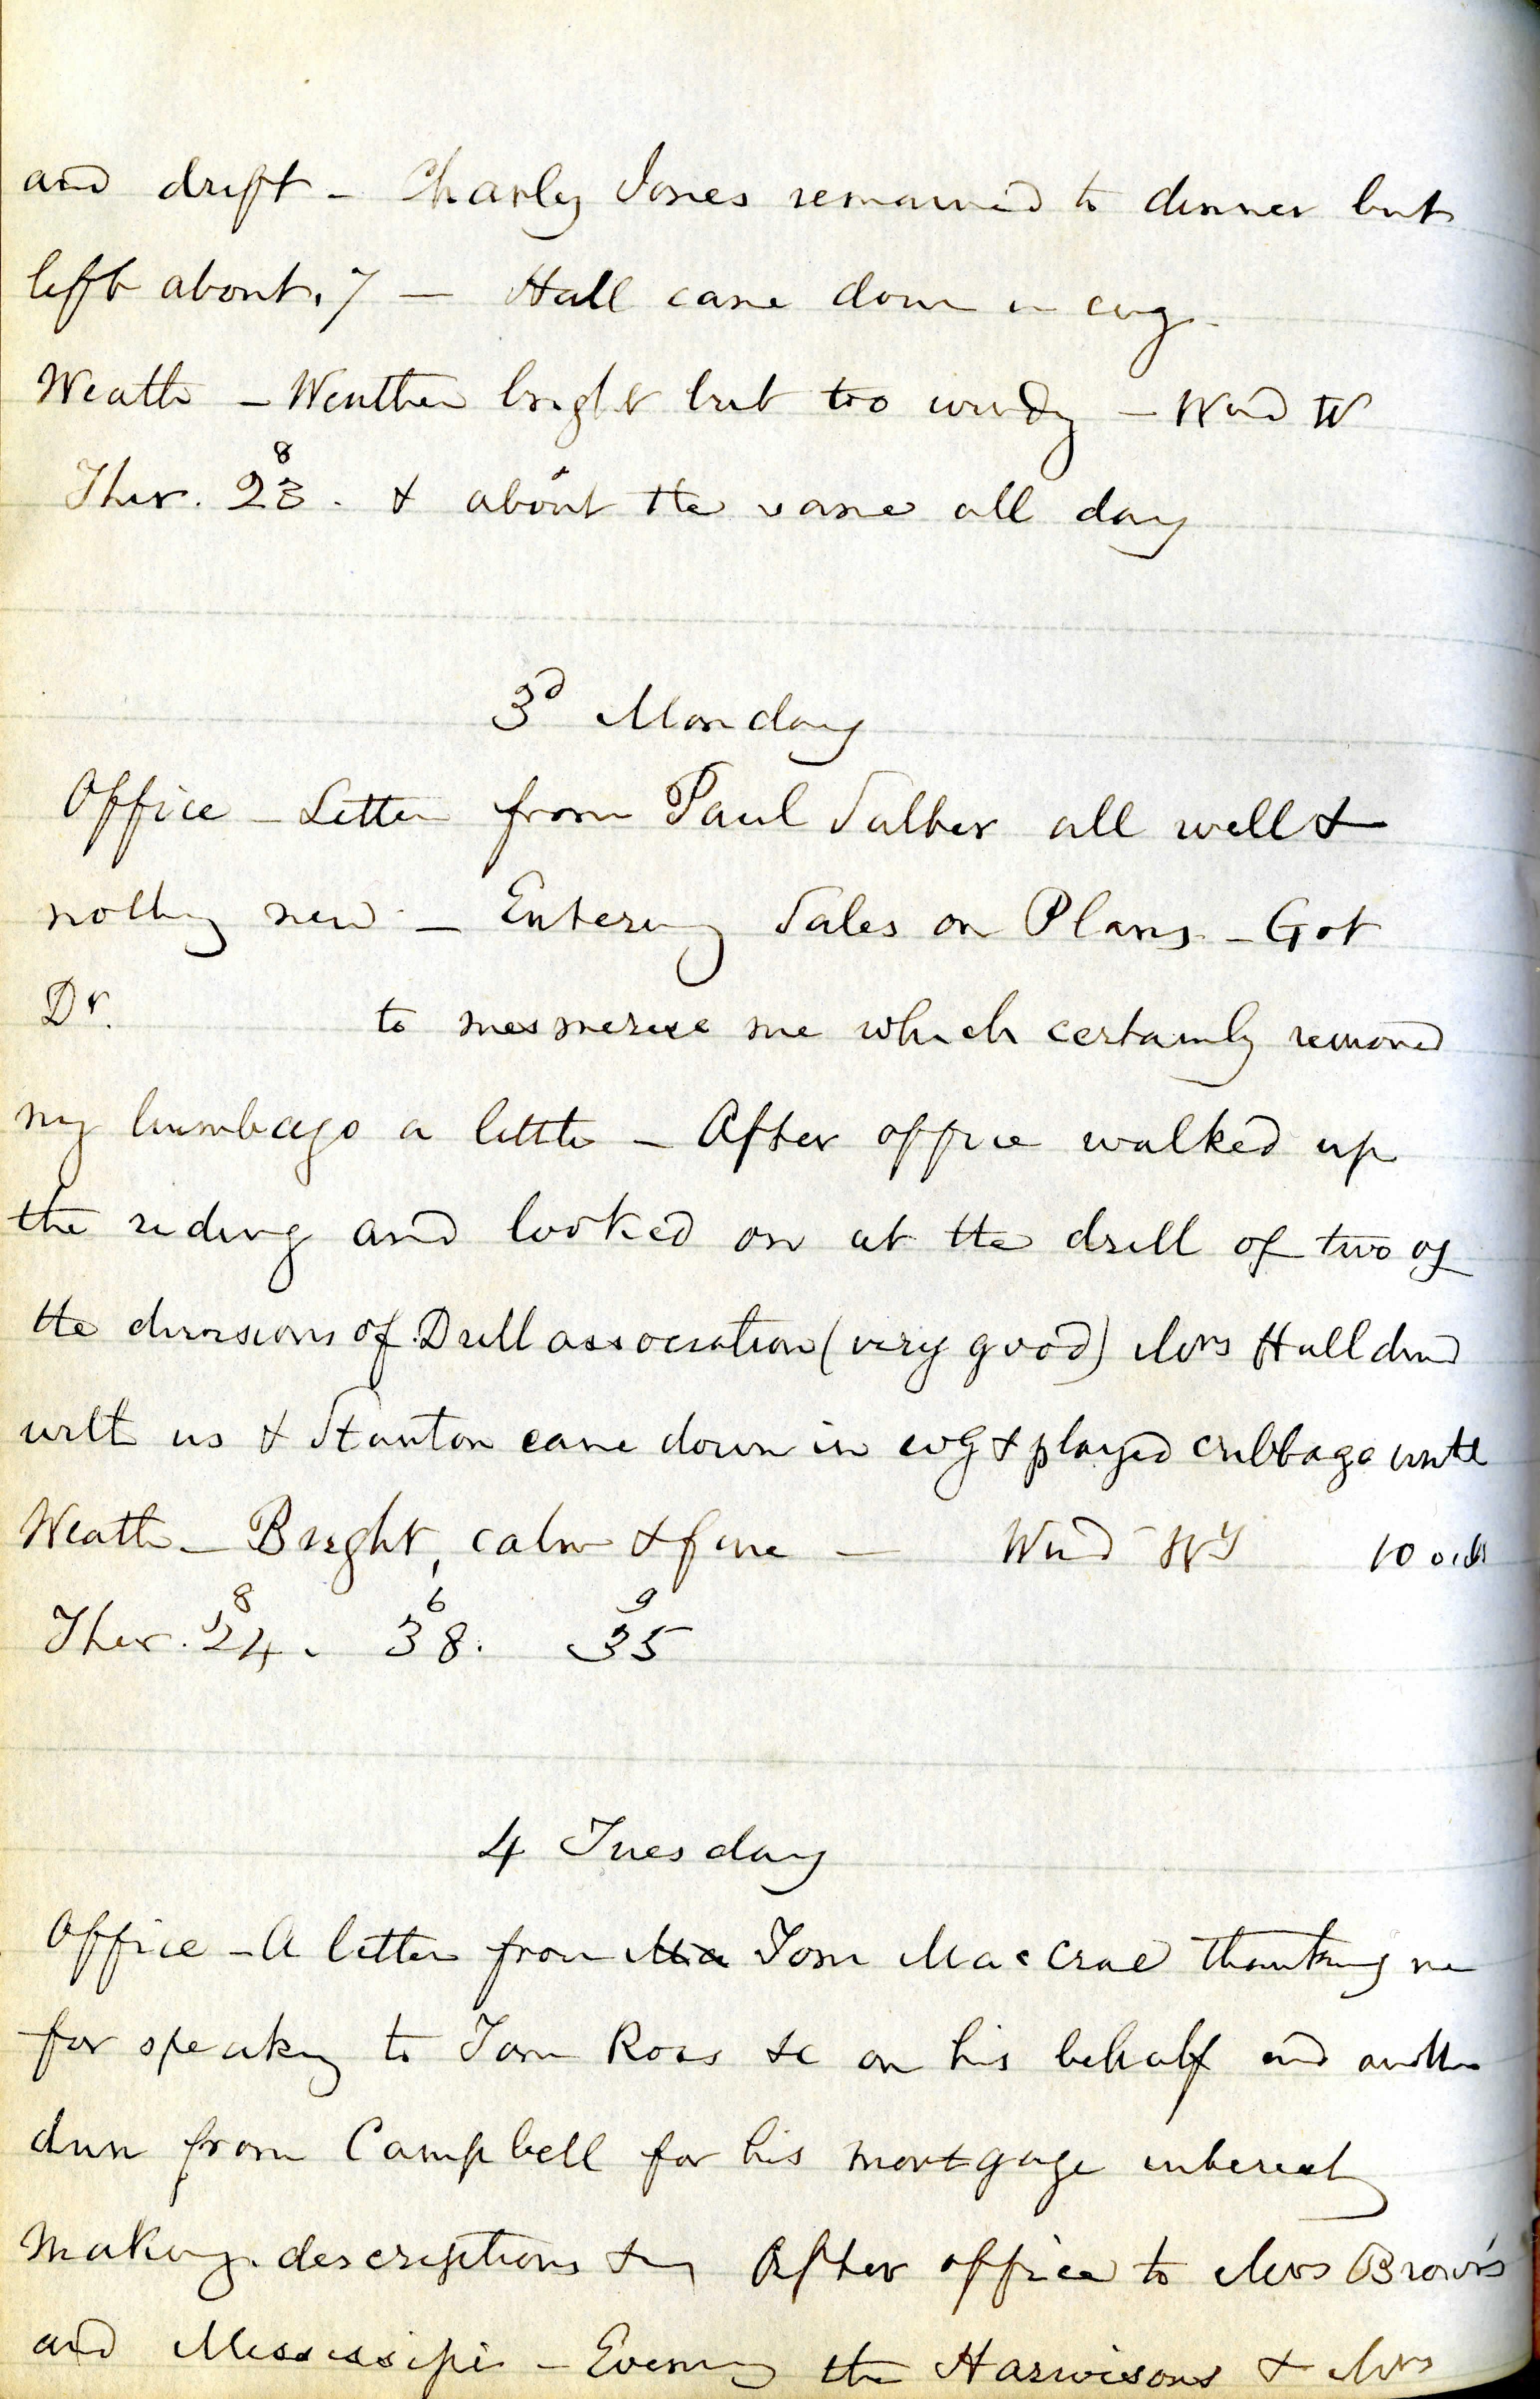 and drift - Charley Jones remained to dinner but
left about 7 - Hall came down in evg.
Weath - Weather bright but too windy - Wind W
8
Ther. 23. & about the same all day
3d Monday
Office - Letter from Paul Salter all well &
nothing new - Entering Sales on Plans - Got
Dr. to mesmerise me which certainly removed
my lumbago a little - After office walked up
the riding and looked on at the drill of two of
the divisions of Drill association (very good) Mrs Hall dined
with us & Stanton came down in evg & played cribbage until
Weath - Bright, calm & fine - Wind Wy 10 oclk
8 6 9
Ther. 24. 38. 35
4 Tuesday
Office - A letter from Ma Tom MacCrae thanking me
for speaking to Tom Ross &c on his behalf and another
dun from Campbell for his mortgage interest
Making descriptions After office to Mrs Brown's
and Mississipi - Evening the Harrisons & Mrs